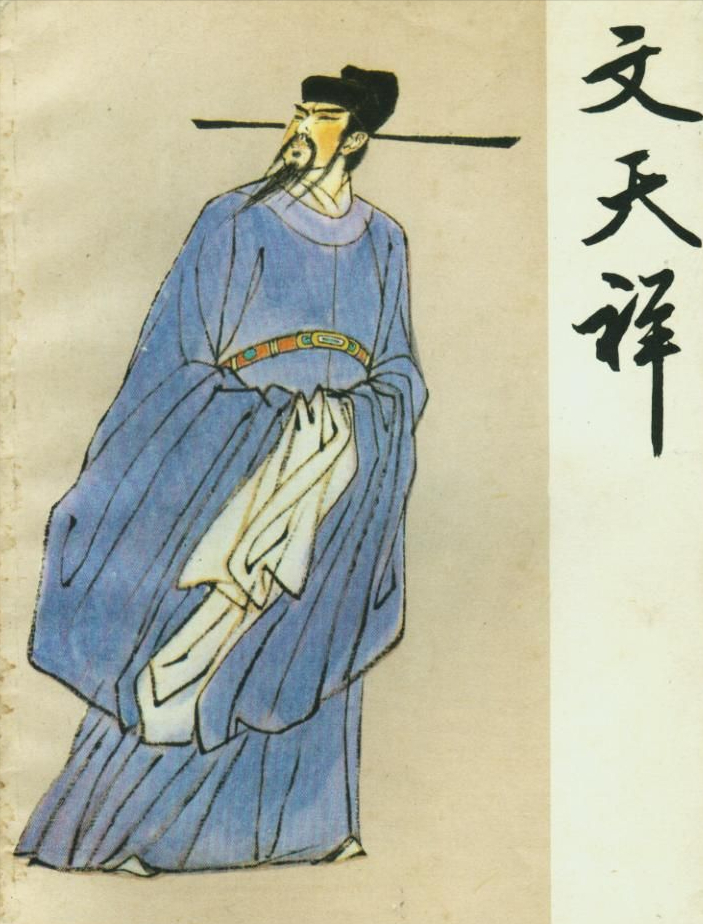 文天祥